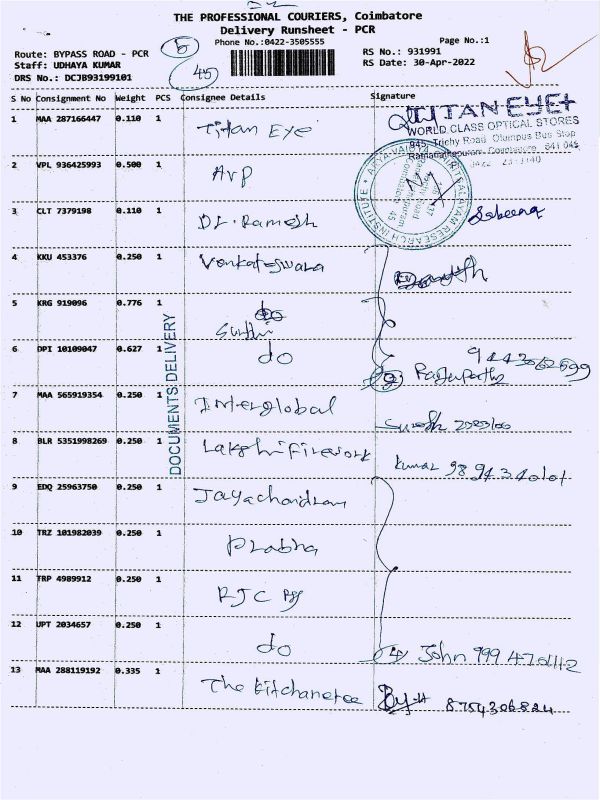 THE PROFESSIONAL COURIERS, Coimbatore
Delivery Runsheet - PCR
Phone No.:0422-3505555
Page No.:1
Route: BYPASS ROAD - PCR
Staff: UDHAYA KUMAR
DRS No.: DCJB93199101
RS No.: 931991
RS Date: 30-Apr-2022
45
S No Consignment No Weight PCS Consignee Details Signature
1 MAA 287166447 0.110 1 Titan Eye
TITAN EYE+
WORLD CLASS OPTICAL STORES
945, Trichy Road, Olumpus Bus Stop
Ramanathapuram, Coimbatore 641 045
2 VPL 936425993 0.500 1 AVP
3 CLT 7379198 0.110 1 Dr. Ramesh Sabeena
4 KKU 453376 0.250 1 Venkateswara
5 KRG 919096 0.776 1
6 DPI 10109047 0.627 1 do
7 MAA 565919354 0.250 1 Interglobal Suresh
8 BLR 5351998269 0.250 1 Lakshi Firework Kumar
9 EDQ 25963750 0.250 1 Jayachandran
10 TRZ 101982039 0.250 1 Prabha
11 TRP 4989912 0.250 1 RJC
12 UPT 2034657 0.250 1 do John
13 MAA 288119192 0.335 1 The Kitchanetee 8754306824
DOCUMENTS DELIVERY